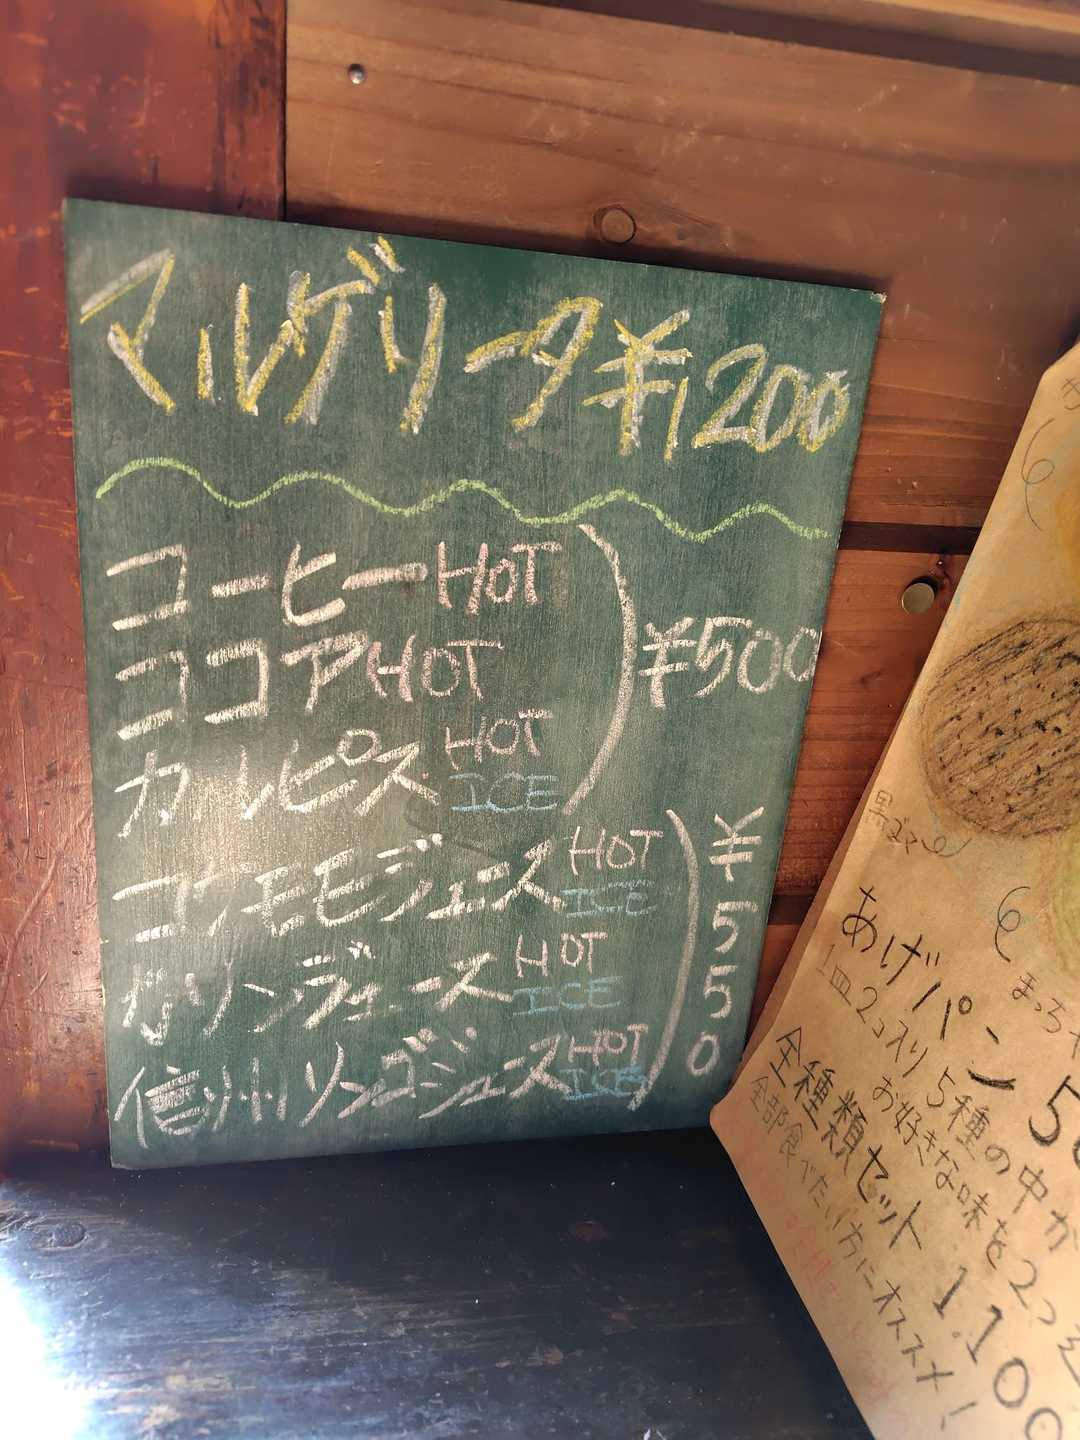 マルゲリータ ¥1,200
コーヒー HOT
ココア HOT
カルピス HOT
ICE
¥500
コケモモジュース HOT
ICE
HOT
ICE
信州リンゴジュース HOT
ICE
¥550
黒ゴマ
まっちゃ
あげパン
1皿2コ入り 5種の中か
お好きな味を2つ
全種類セット 1,100
全部食べたい方にオススメ!